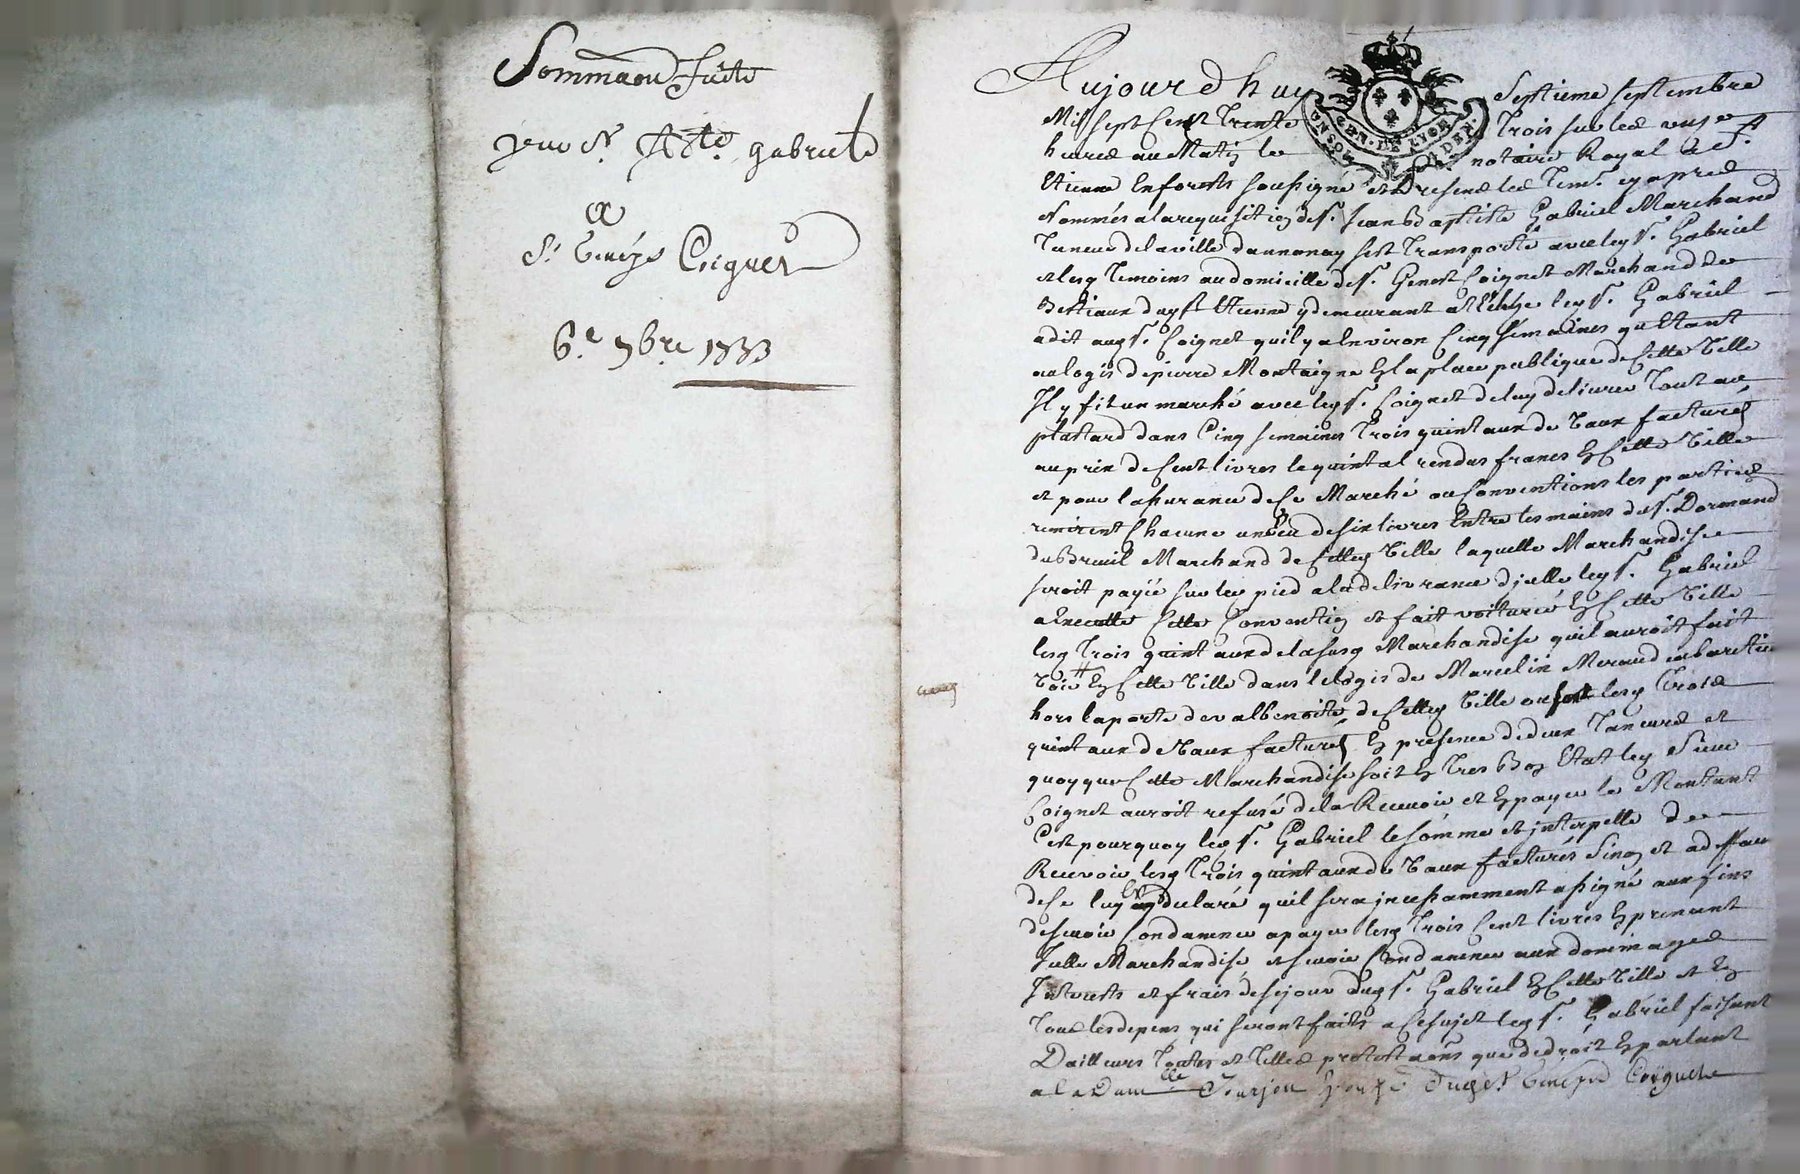 Sommaon faite
pour Sr. Bte. gabriel
a
Sr. Genest Coignet
6.e 7bre 1733
Aujourdhuy Septieme septembre
Mil sept Cent Trente Trois sur les onze
heures du Matin le notaire Royal a St.
Etienne en forests soussigné et presence les Tems. cy apres
Nommés a la requisition de s. Jean Baptiste Gabriel Marchand
Taneur de la ville dannonay sest Transporté avec ley s. Gabriel
et lesq Temoins au domicille de s. Genest Coignet Marchand de
Bestiaux duy st Etienne y demeurant ley s. Gabriel
a dit auq s. Coignet quil y a Environ Cinq semaines quEtant
au logis de pierre Montaigne En la place publique de Cette Ville
Il y fit un marché avec ley s. Coignet de luy delivrer Tout au
plustard dans Cinq semaines Trois quintaux de Vaux facturés
au prix de Cent livres le quintal rendus francs En Cette Ville
et pour lassurance de Ce Marché ou Conventions les parties
remirent Chacune un Ecu de six livres Entre les mains du s. Dormand
duBreuil Marchand de Cettey Ville laquelle Marchandise
seroit payée sur ley pied a la delivrance dielle ley s. Gabriel
a Executté Cette Convention et fait voiturer En Cette Ville
lesq Trois quintaux de lasusq Marchandise quil auroit fait
Voir En Cette Ville dans le logis de Marcelin Meraud cabaretier
hors la porte de valbenoite de Cettey Ville ou sont lesq Trois
quintaux de Vaux facturés En presence de deux Taneurs et
quoyque Cette Marchandise soit En Tres Bon Etat ley Sieur
Coignet auroit refusé de la Recevoir et En payer le Montant
Cest pourquoy ley s. Gabriel le somme et interpelle de
Recevoir lesq Trois quintaux de Vaux facturés Sinon et a deffau
de Ce luy a declaré quil sera incessamment assigné aux fins
de se voir Condamner a payer lesq Trois Cent livres En prenant
Jcelle Marchandise et se voir Condamner aux dommages
Interests et frais de sejour duq s. Gabriel En Cette Ville et En
Tous les depens qui seront faits a Ce sujet ley s. Gabriel faisant
Dailleurs Toutes et Telles protestaons que de droit En parlant
a la Dam.lle Jourjon Coignet